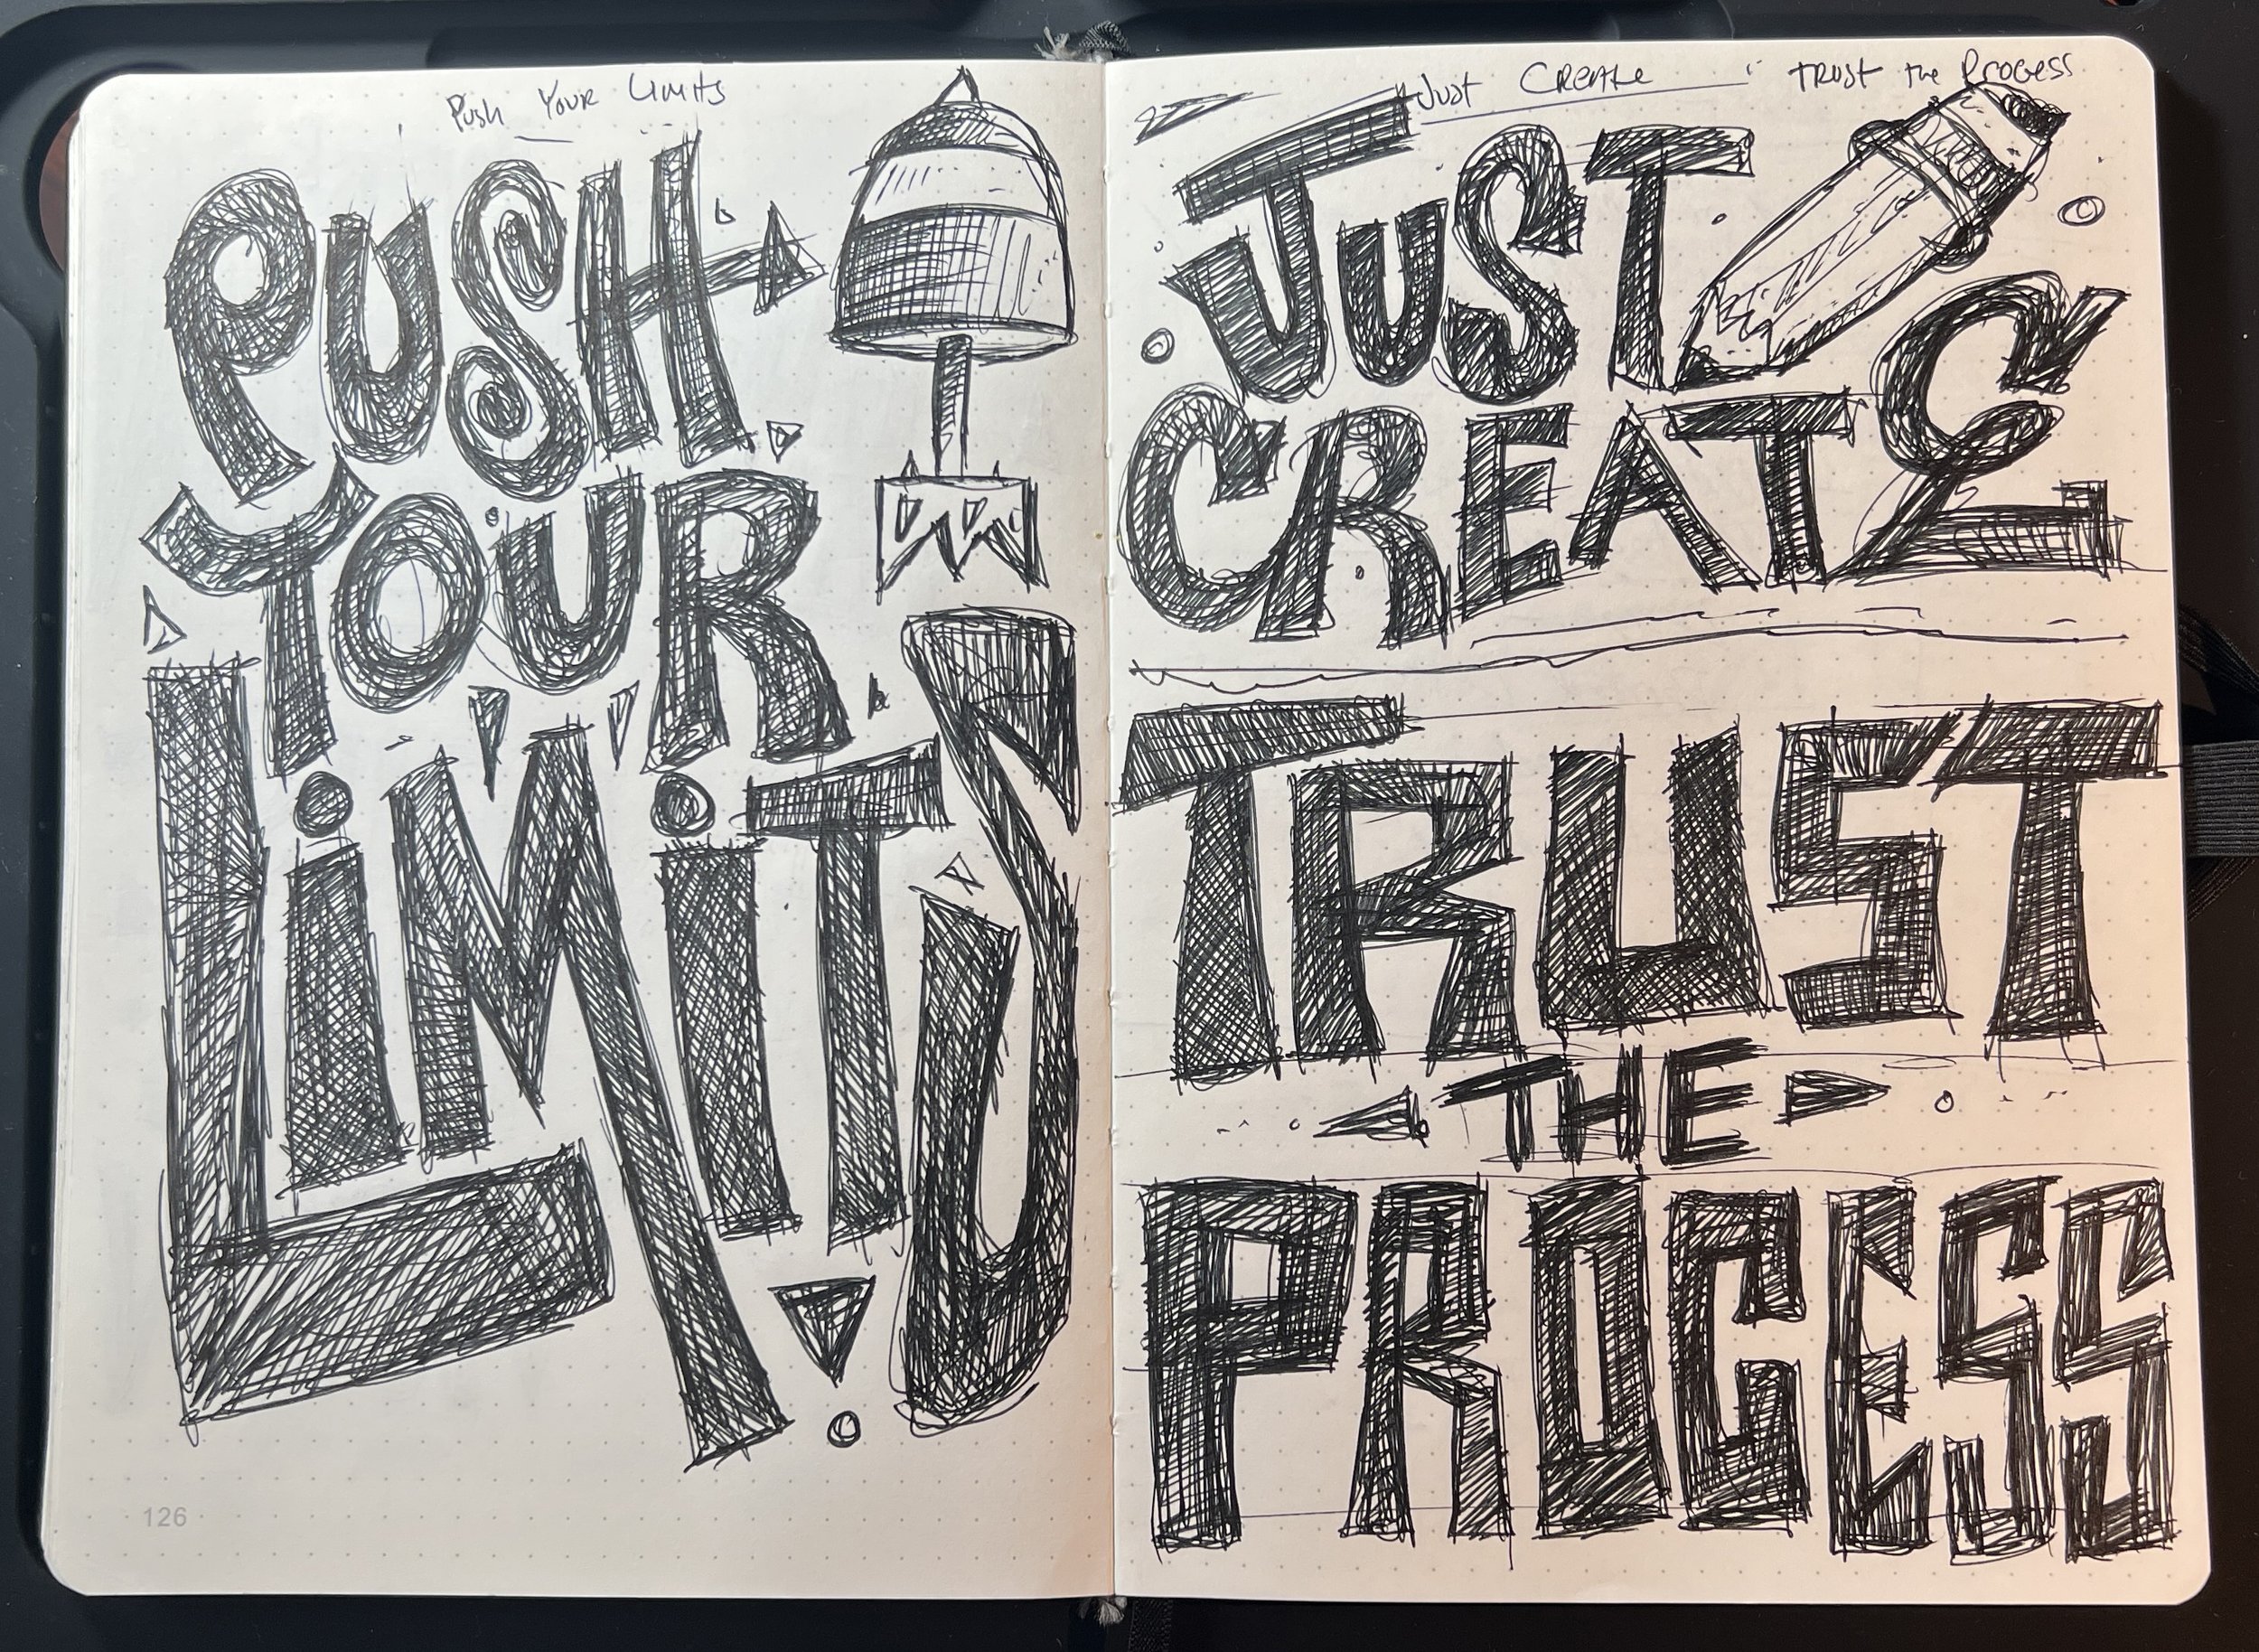 Push Your Limits
PUSH
YOUR
LiMiTS
126
"Just Create" Trust the Process
JUST
CREATE
TRUST
THE
PROCESS